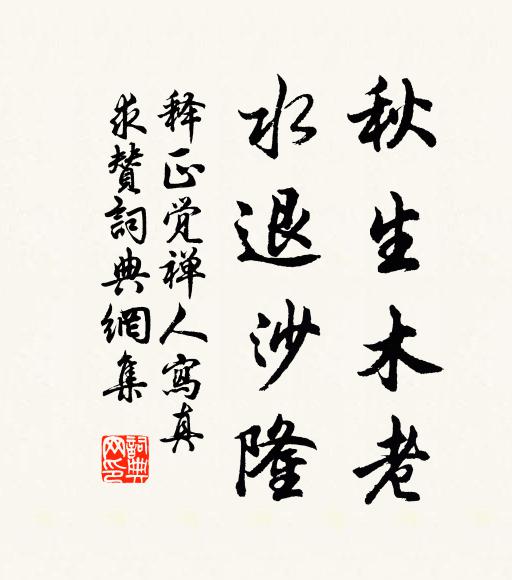 秋生木老
水退沙隆
释正觉禅人寫真
求赞詞典網集
詞典网印